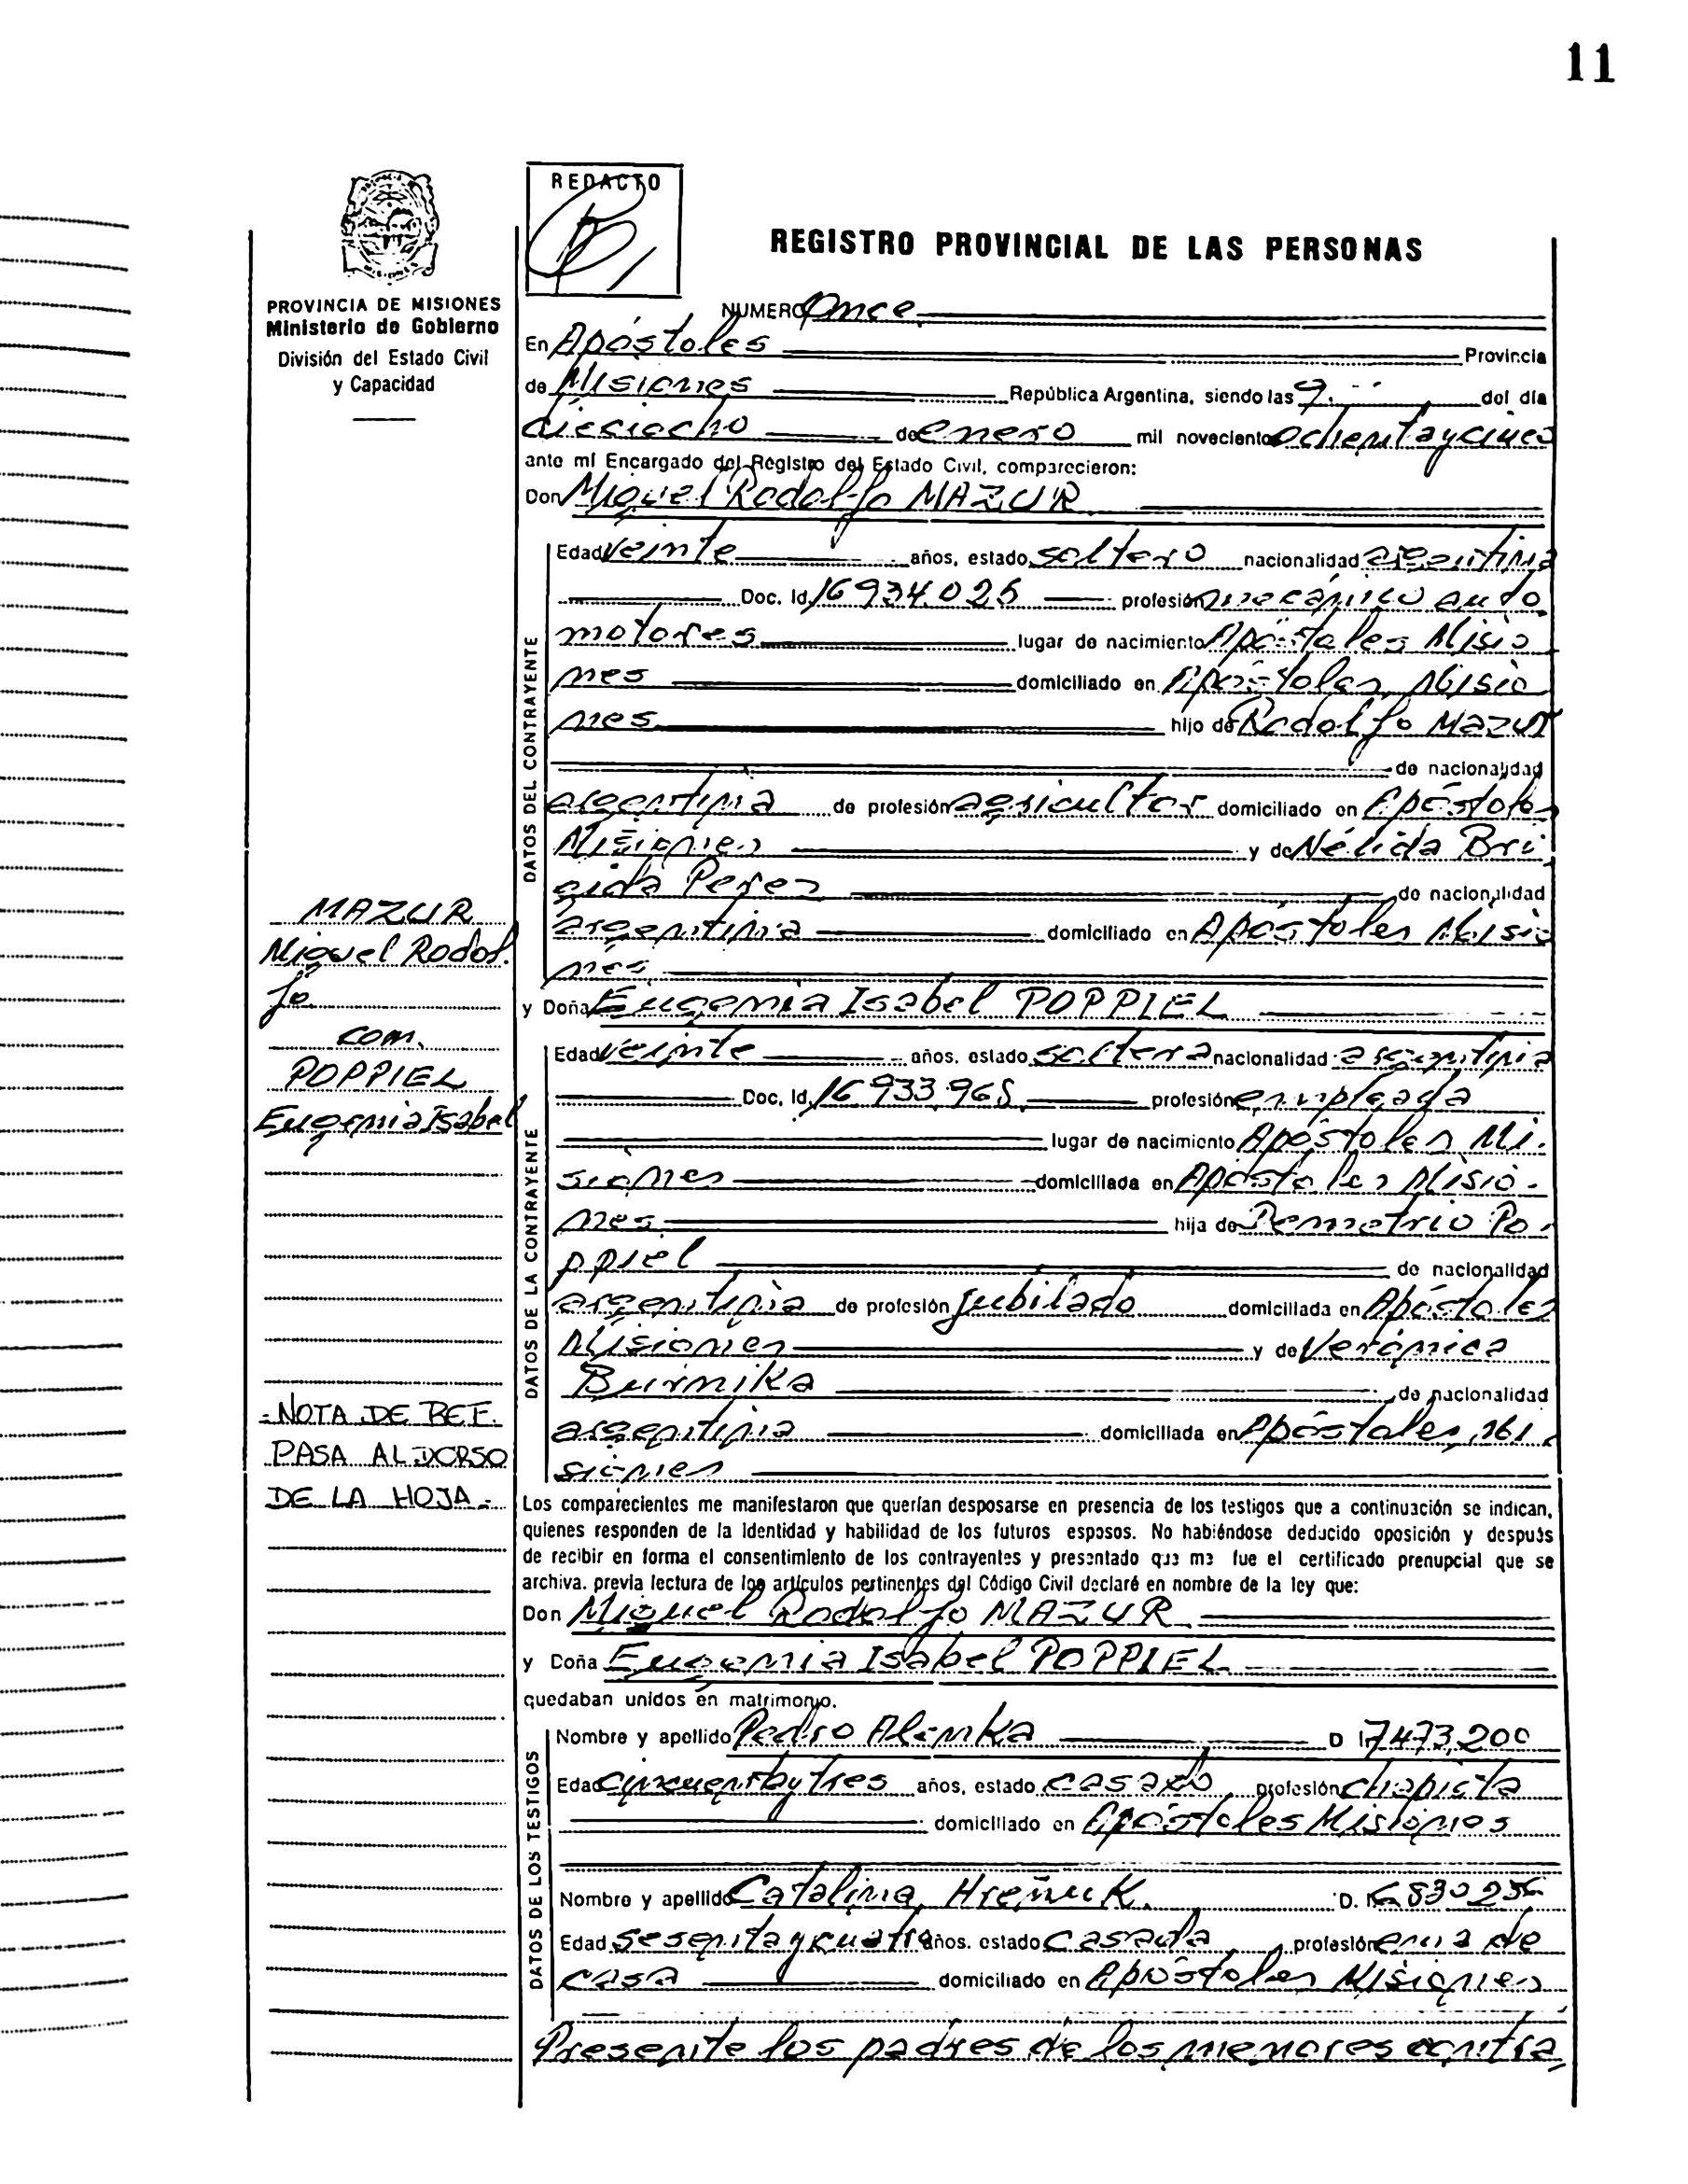 11
REDACTO
REGISTRO PROVINCIAL DE LAS PERSONAS
PROVINCIA DE MISIONES
Ministerio de Gobierno
División del Estado Civil
y Capacidad
NUMERO Once
En Apóstoles Provincia
de Misiones República Argentina, siendo las 9 del día
dieciocho de enero mil novecientos ochenta y cinco
ante mí Encargado del Registro del Estado Civil, comparecieron:
Don Miguel Rodolfo MAZUR
DATOS DEL CONTRAYENTE
Edad veinte años, estado soltero nacionalidad argentina
Doc. Id. 16 934.025 profesión mecánico auto
motores lugar de nacimiento Apóstoles Misio
nes domiciliado en Apóstoles Misio
nes hijo de Rodolfo Mazur
de nacionalidad
argentina de profesión agricultor domiciliado en Apóstoles
Misiones y de Nélida Bri
gida Perez de nacionalidad
argentina domiciliado en Apóstoles Misio
nes
MAZUR
Miguel Rodol.
fo
con.
POPPIEL
Eugenia Isabel
y Doña Eugenia Isabel POPPIEL
DATOS DE LA CONTRAYENTE
Edad veinte años, estado soltera nacionalidad argentina
Doc. Id. 16 933.968 profesión empleada
lugar de nacimiento Apóstoles Mi.
siones domiciliada en Apóstoles Misio-
nes hija de Demetrio Po-
ppiel de nacionalidad
argentina de profesión jubilado domiciliada en Apóstoles
Misiones y de Verónica
Burnika de nacionalidad
argentina domiciliada en Apóstoles, Mi
siones
-NOTA DE REF.
PASA AL DORSO
DE LA HOJA.-
Los comparecientes me manifestaron que querían desposarse en presencia de los testigos que a continuación se indican,
quienes responden de la identidad y habilidad de los futuros esposos. No habiéndose deducido oposición y después
de recibir en forma el consentimiento de los contrayentes y presentado que me fue el certificado prenupcial que se
archiva. previa lectura de los artículos pertinentes del Código Civil declaré en nombre de la ley que:
Don Miguel Rodolfo MAZUR
y Doña Eugenia Isabel POPPIEL
quedaban unidos en matrimonio.
DATOS DE LOS TESTIGOS
Nombre y apellido Pedro Alenka D I 7473,200
Edad cincuenta y tres años, estado casado profesión chapista
domiciliado en Apóstoles Misiones
Nombre y apellido Catalina Hreñuk. D. I. 6 830 256
Edad sesenta y cuatro años. estado casada profesión ama de
casa domiciliado en Apóstoles Misiones
Presente los padres de los menores contra